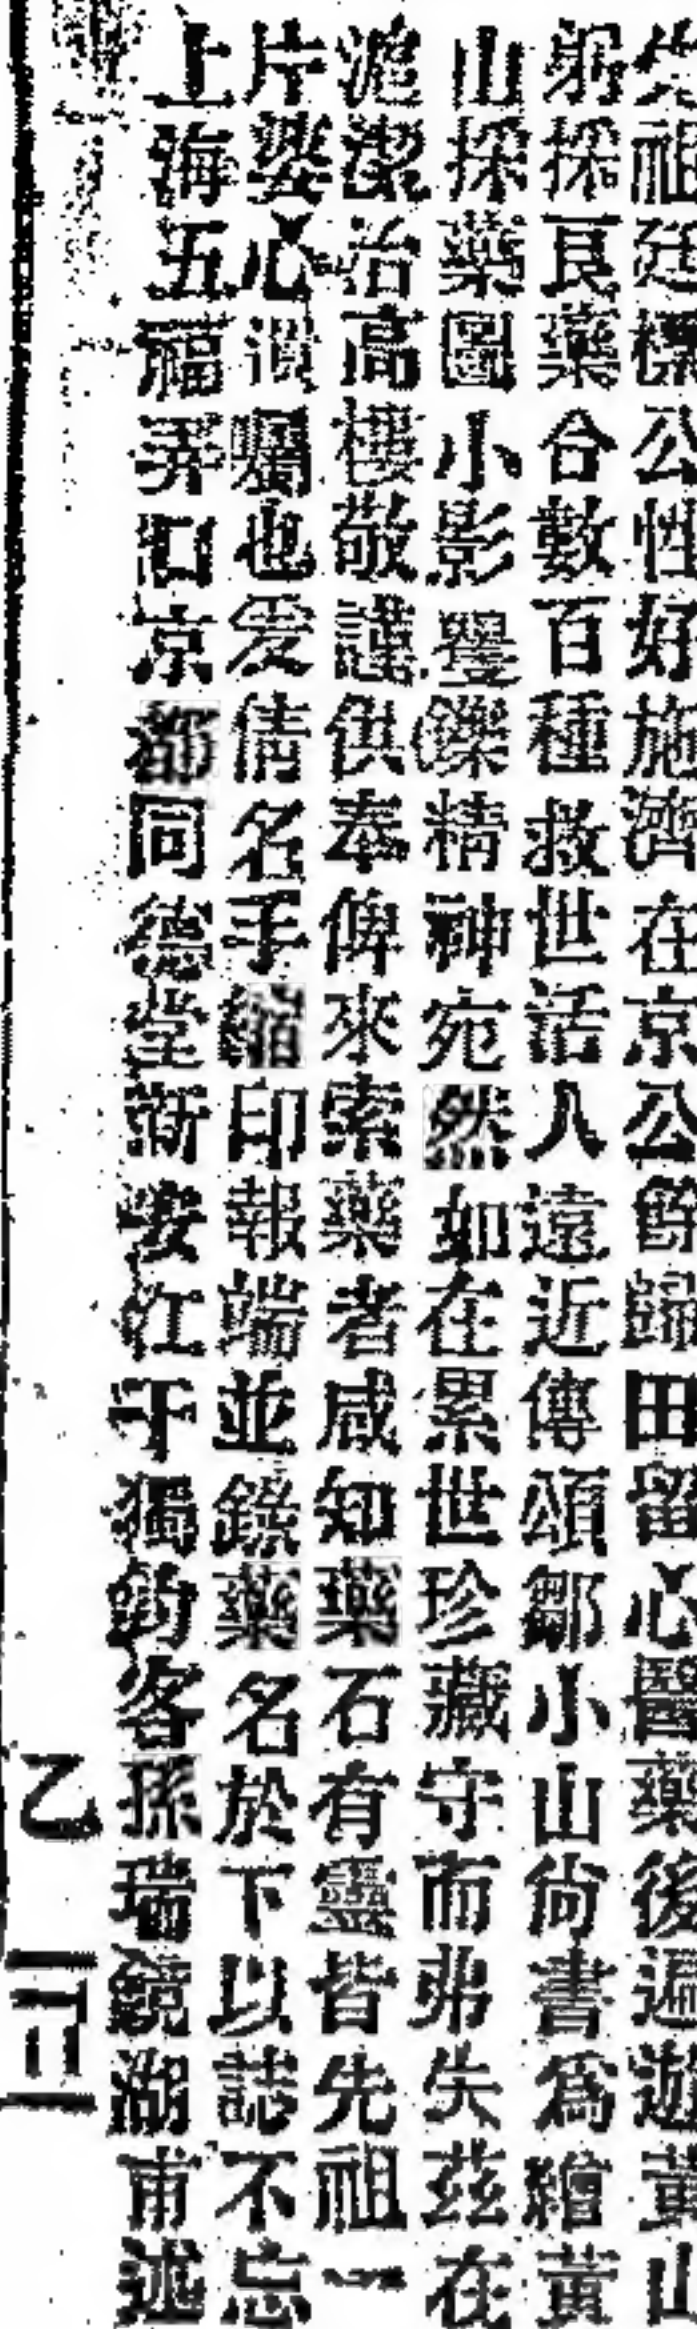 先祖廷標公性好施濟在京公餘歸田留心醫藥後遍遊黃山
躬採良藥合數百種救世活人遠近傳頌鄒小山尚書爲繪黃
山採藥圖小影矍鑠精神宛然如在累世珍藏守而弗失茲在
滬潔治高樓敬謹供奉俾來索藥者咸知藥石有靈皆先祖一
片婆心諄囑也爰倩名手縮印報端並錄藥名於下以誌不忘
上海五福弄口京都同德堂新安江干獨釣客孫瑞鏡湖甫述
乙